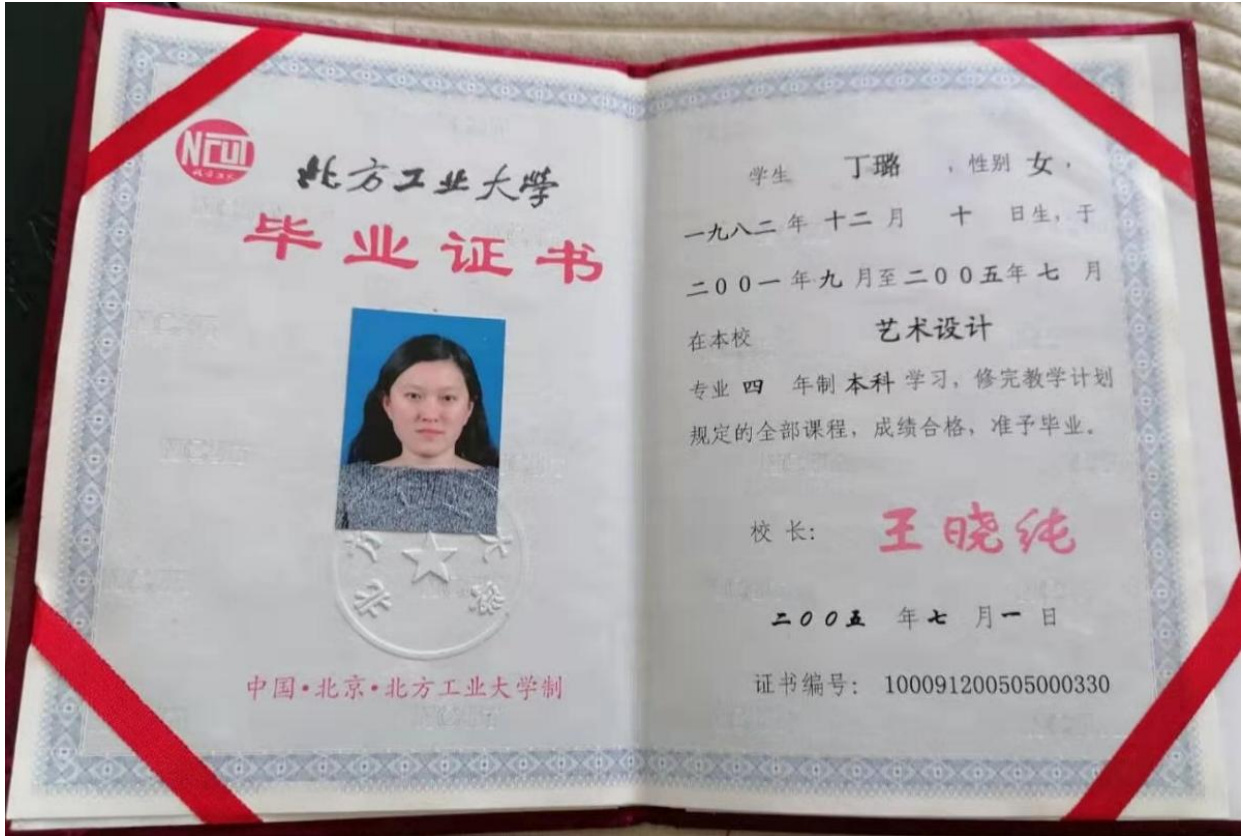 NCUT
北方工大
北方工业大学
毕业证书
中国·北京·北方工业大学制
学生 丁璐 ，性别 女，
一九八二 年 十二 月 十 日生，于
二00一 年 九 月至 二00五 年 七 月
在本校 艺术设计
专业 四 年制 本科 学习，修完教学计划
规定的全部课程，成绩合格，准予毕业。
校 长： 王晓纯
二00五 年 七 月 一 日
证书编号： 100091200505000330